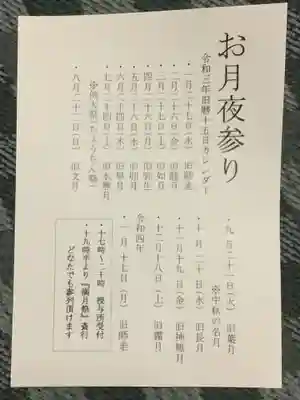 お月夜参り
令和三年旧暦十五日カレンダー
・一月二十七日(水) 旧師走
・二月二十六日(金) 旧睦月
・三月二十七日(土) 旧如月
・四月二十六日(月) 旧弥生
・五月二十六日(水) 旧卯月
・六月二十四日(木) 旧皐月
・七月二十四日(土) 旧水無月
・八月二十二日(日) 旧文月
・九月二十一日(火) 旧葉月
※中秋の名月
・十月二十日(水) 旧長月
・十一月十九日(金) 旧神無月
・十二月十八日(土) 旧霜月
令和四年
・一月十七日(月) 旧師走
・十七時~二十時 授与所受付
・十九時半より『満月祭』斎行
どなたでも参列頂けます